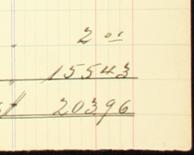 2 00
155 43
203 96